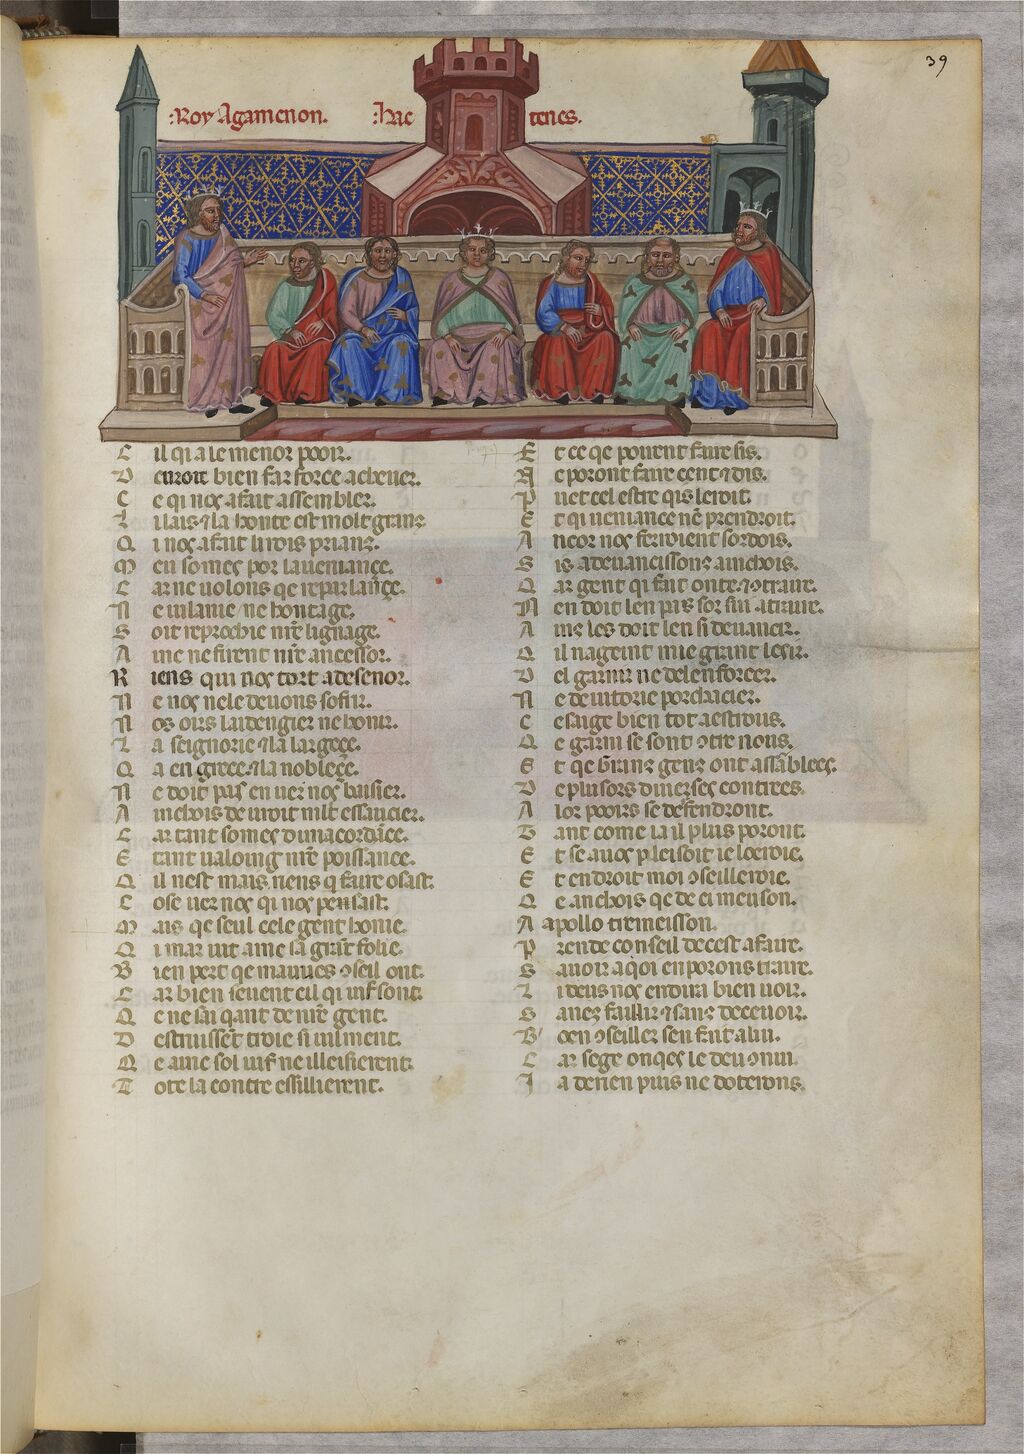 39
:Roy Agamenon. :hac tenes.
C il qui a le menor pooir.
D euroit bien far force acheuer.
C e qi nos a fait assembler.
L i lais ⁊ la honte est molt granz
Q i nos a fait li rois prianz.
M eu somes por la ueniance.
C ar ne uolons qe reparlance.
N e uilanie ne hontage.
S oit reprochie nr̄e lignage.
A inc ne firent nr̄e ancessor.
R iens qui nos tort a desenor.
N e nos ne le deuons sofrir.
N os oirs laidengier ne honir.
L a seignorie ⁊ la largece.
Q a en grece ⁊ la noblece.
N e doit pas en uer nos baisier.
A inchois deuroit mlt essaucier.
C ar tant somes dun acordāce.
E tant ualoing nr̄e poissance.
Q il nest mais riens q faire osast.
C ose uer nos qui nos pensast.
M ais qe seul cele gent honie.
Q i mar uit ainc sa grāt folie.
B ien pert qe mauues ɔseil ont.
C ar bien seuent cil qi uif sont.
Q e ne sai qant de nr̄e gent.
D estruissēt troie si uilment.
Q e ainc sol uif ne i lleisierent.
T ote la contre essillierent.
E t ce qe porent faire sis.
N e poront faire cent ⁊ dis.
P uet cel estre qis leroit.
E t qi ueniance nē prendroit.
A ncor nos feroient sordois.
S is adeuancissonz ainchois.
Q ar gent qi fait onte ⁊ ɔtraire.
N en doit len pas sor sin atraire.
A inz les doit len si deuancir.
Q il nagent mie grant lesir.
D el garnir ne del enforcer.
N e de uitorie porchacier.
C e saige bien tot a estrous.
Q e garni se sont ɔtre nous.
E t qe granz genz ont assābleez.
D e plusors diuerses contrees.
A lor pooirs se defendront.
T ant come la il plus poront.
E t se auos pleisoit ie loeroie.
E t endroit moi ɔseilleroie.
Q e anchois qe de ci meuson.
A apollo tremeisson.
P rende conseil de cest afaire.
S auoir a qoi en porons traire.
L i deus nos en dira bien uoir.
S anez faillir ⁊ sanz deceuoir.
B oen ɔseillez sen fait abii.
C ar sege onqes le deu ɔnui.
I a de rien puis ne doterons.